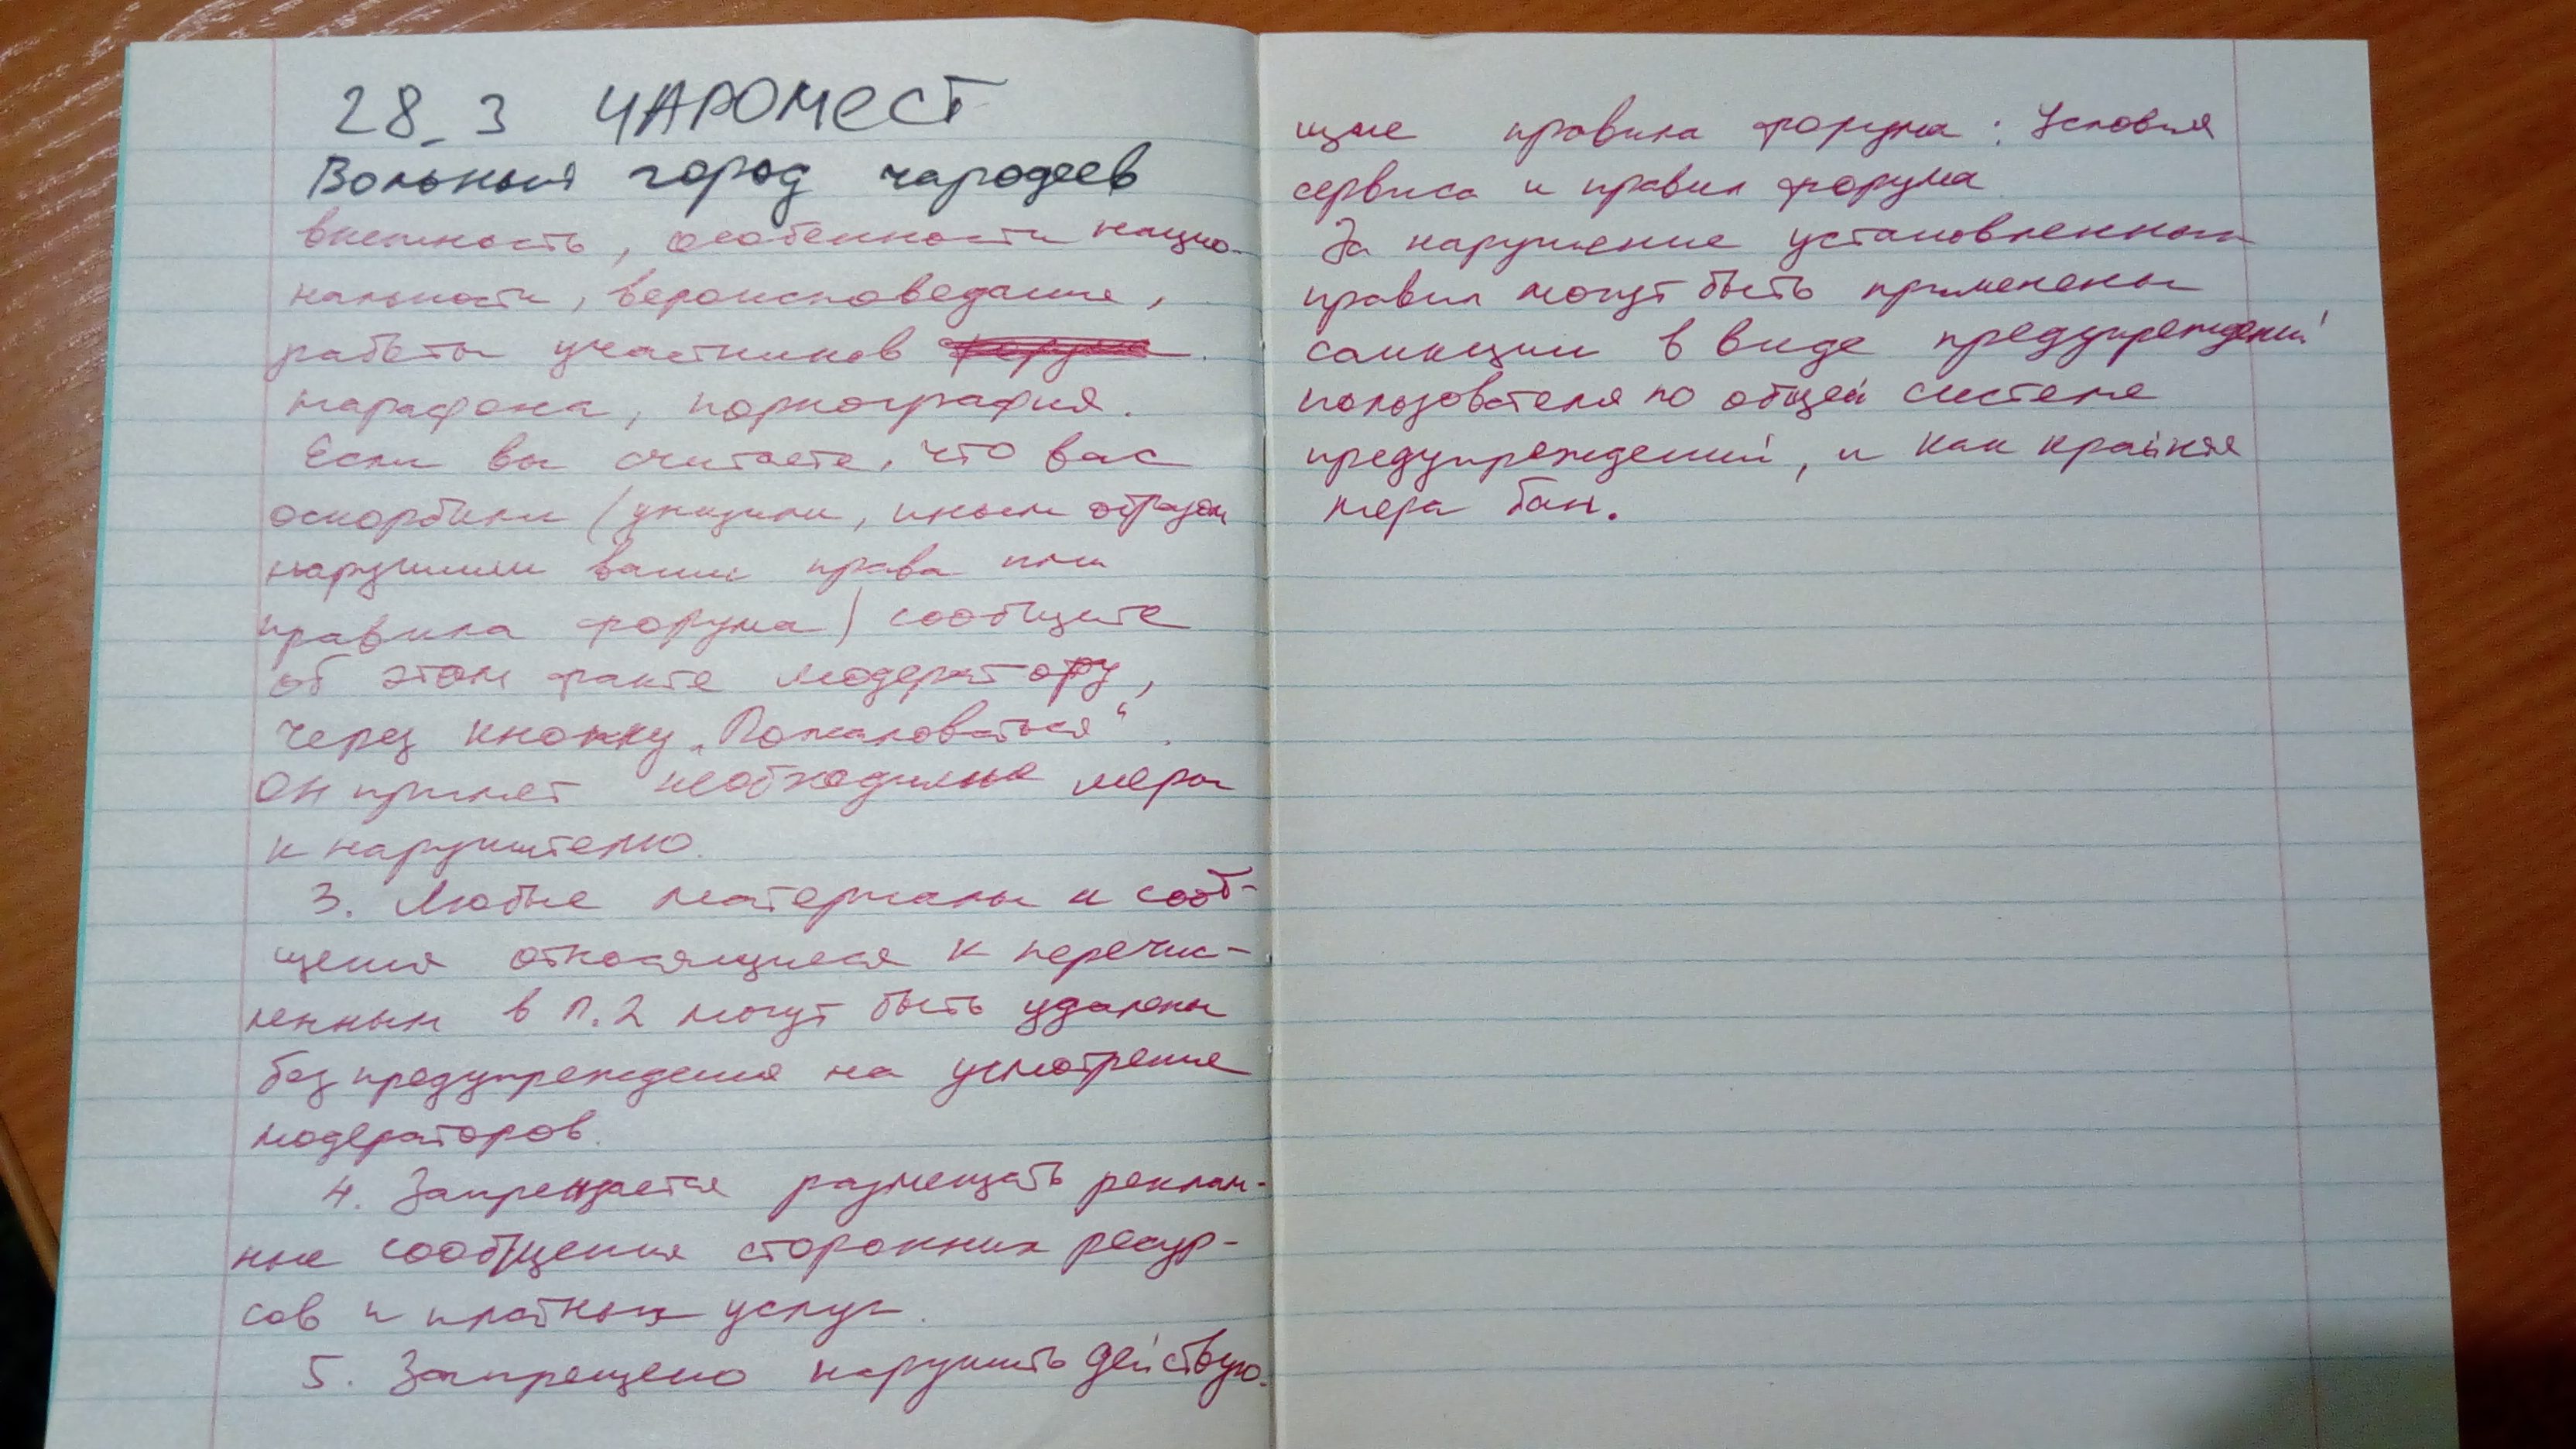 28_3 ЧАРОМЕСТ
Вольный город чародеев
внешность, особенности нацио-
нальности, вероисповедание,
работы участников
марафона, порнография.
Если вы считаете, что вас
оскорбили (унизили, иным образом
нарушили ваши права или
правила форума) сообщите
об этом факте модератору,
через кнопку „Пожаловаться“.
Он примет необходимые меры
к нарушителю.
3. Любые материалы и сооб-
щения относящиеся к перечис-
ленным в п.2 могут быть удалены
без предупреждения на усмотрение
модераторов.
4. Запрещается размещать реклам-
ные сообщения сторонних ресур-
сов и платных услуг.
5. Запрещено нарушать действую-
щие правила форума: Условия
сервиса и правил форума
За нарушение установленных
правил могут быть применены
санкции в виде предупреждений
пользователя по общей системе
предупреждений, и как крайняя
мера бан.